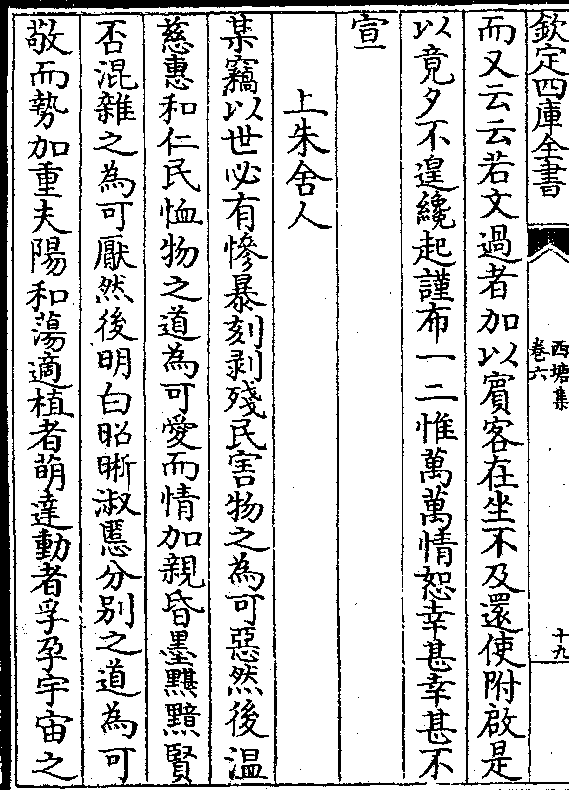 欽定四庫全書
西塘集
卷六
十九
而又云云若文過者加以賓客在坐不及還使附啟是
以竟夕不遑纔起謹布一二惟萬萬情恕幸甚幸甚不
宣
上朱舍人
某竊以世必有慘暴刻剥殘民害物之為可惡然後温
慈惠和仁民恤物之道為可愛而情加親昏墨䵝黯賢
否混雜之為可厭然後明白昭晣淑慝分别之道為可
敬而勢加重夫陽和蕩適植者萌達動者孚孕宇宙之